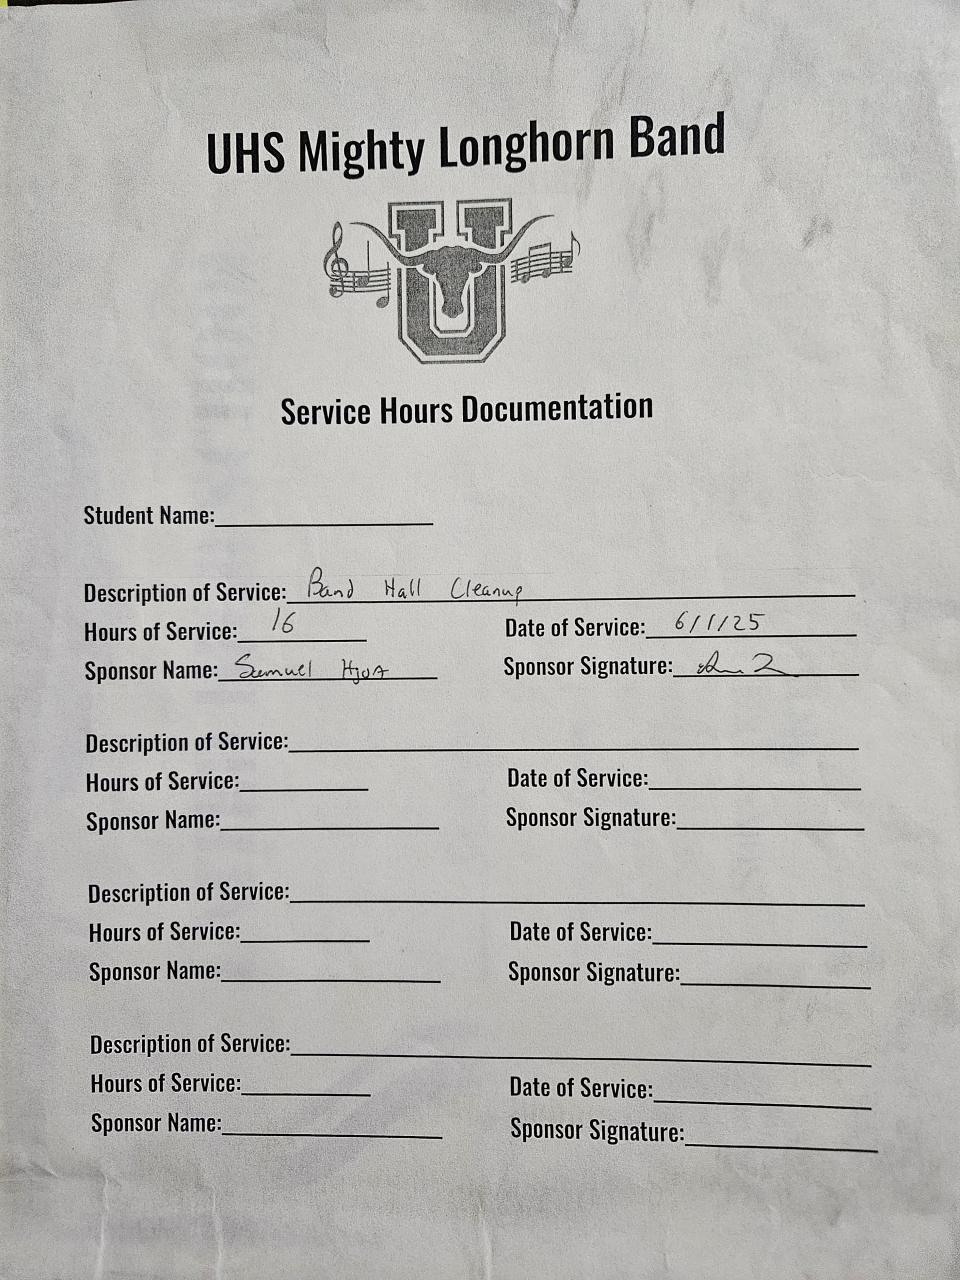 UHS Mighty Longhorn Band
U
Service Hours Documentation
Student Name:
Description of Service: Band Hall Cleanup
Hours of Service: 16 Date of Service: 6/1/25
Sponsor Name: Samuel Sponsor Signature:
Description of Service:
Hours of Service: Date of Service:
Sponsor Name: Sponsor Signature:
Description of Service:
Hours of Service: Date of Service:
Sponsor Name: Sponsor Signature:
Description of Service:
Hours of Service: Date of Service:
Sponsor Name: Sponsor Signature: